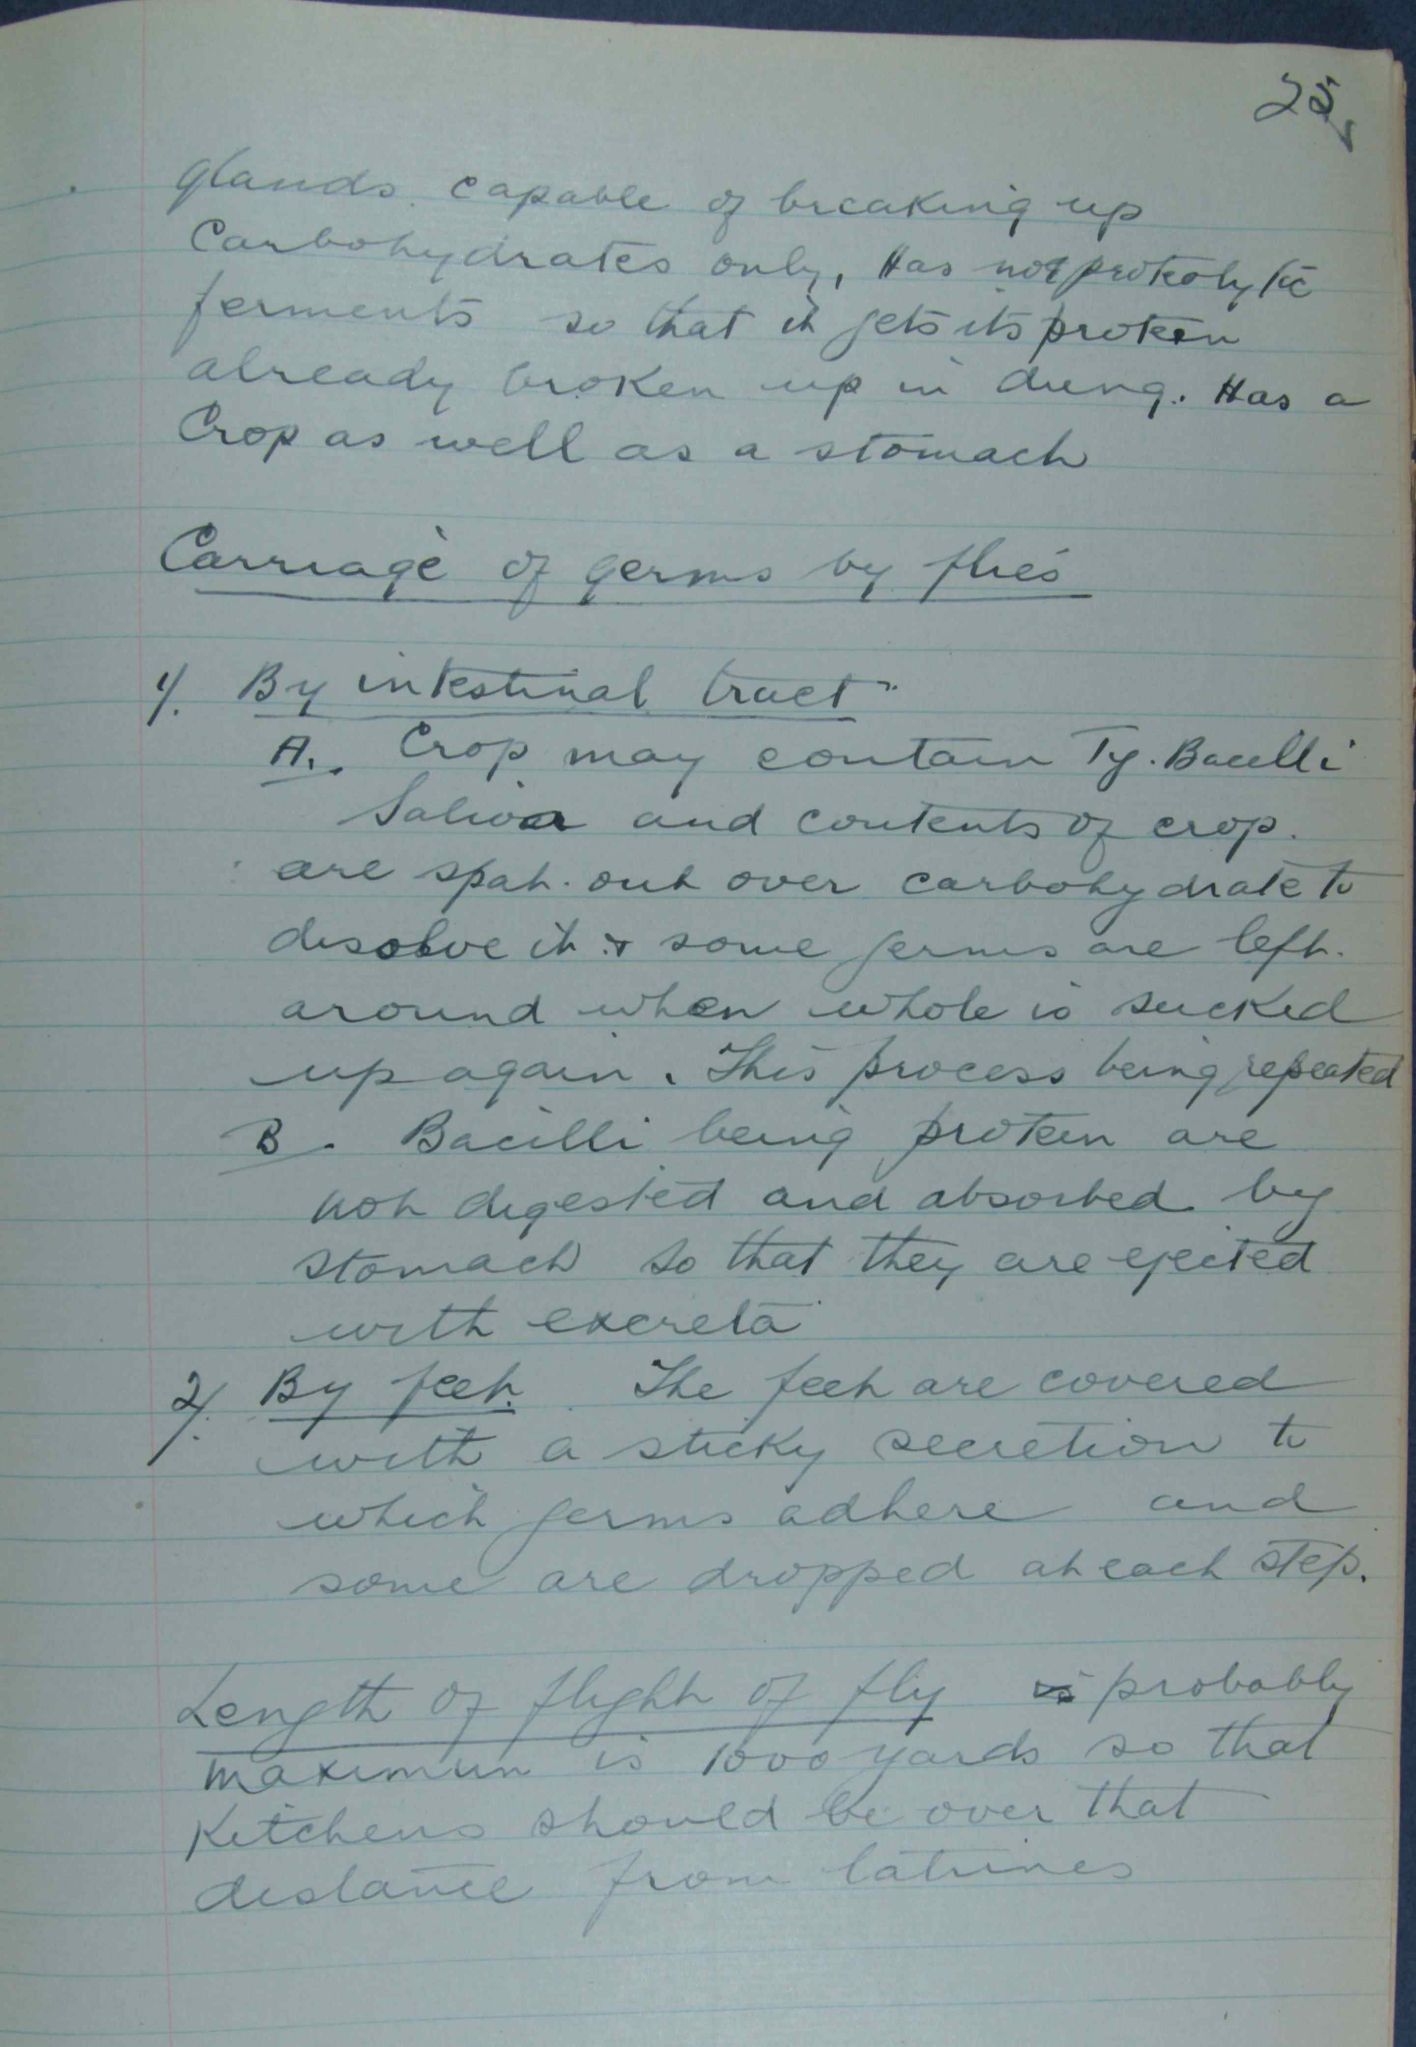 25
glands capable of breaking up
Carbohydrates only, Has not proteolytic
ferments so that it gets its protein
already broken up in dung. Has a
Crop as well as a stomach
Carriage of germs by flies
1/. By intestinal tract
A. Crop may contain Ty. Bacilli
Saliva and contents of crop.
are spat out over carbohydrate to
disolve it & some germs are left
around when whole is sucked
up again. This process being repeated
B. Bacilli being protein are
not digested and absorbed by
stomach so that they are ejected
with excreta
2/. By feet. The feet are covered
with a sticky secretion to
which germs adhere and
some are dropped at each step.
Length of flight of fly is probably
maximum is 1000 yards so that
Kitchens should be over that
distance from latrines